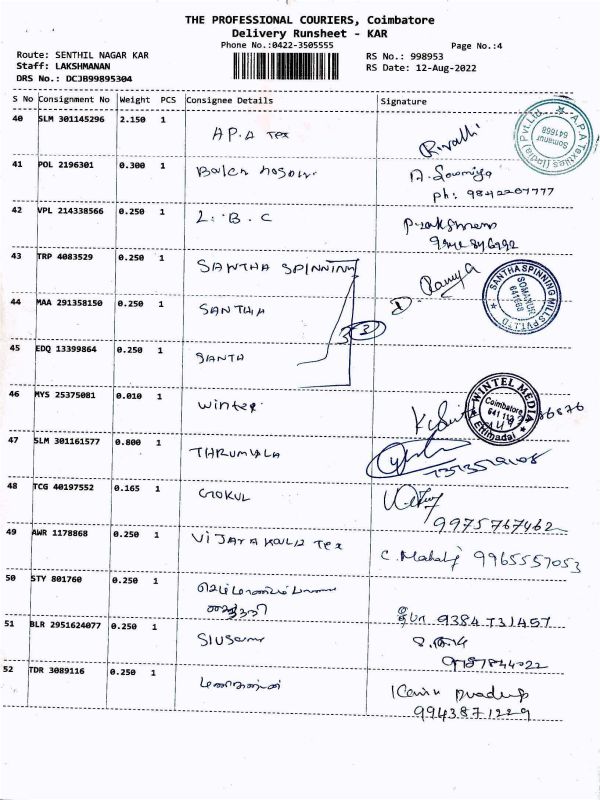 THE PROFESSIONAL COURIERS, Coimbatore
Delivery Runsheet - KAR
Phone No.:0422-3505555
Page No.:4
Route: SENTHIL NAGAR KAR
RS No.: 998953
Staff: LAKSHMANAN
RS Date: 12-Aug-2022
DRS No.: DCJB99895304
S No Consignment No Weight PCS Consignee Details Signature
40 SLM 301145296 2.150 1 A.P.A Tex
A.P.A Textiles (India) Pvt.Ltd.
Somanur
641668
41 POL 2196301 0.300 1 A. Sowmiya
ph: 9842207777
42 VPL 214338566 0.250 1 L. B. C
43 TRP 4083529 0.250 1 SANTHA SPINNING Ramya
SANTHA SPINNING MILLS PVT.LTD
SOMANUR
641668
44 MAA 291358150 0.250 1 SANTHA
3
45 EDQ 13399864 0.250 1 SANTH
46 MYS 25375081 0.010 1 Winter
WINTEL MEDIA
Coimbatore
641 112
Ettimadai
47 SLM 301161577 0.800 1 THRUMALA
48 TCG 40197552 0.165 1 GOKUL
9975767462
49 AWR 1178868 0.250 1 VIJAYA Tex C. Mahalj 9965557053
50 STY 801760 0.250 1
9384731457
51 BLR 2951624077 0.250 1
9787844022
52 TDR 3089116 0.250 1 Kavin Pradeep
9943871229